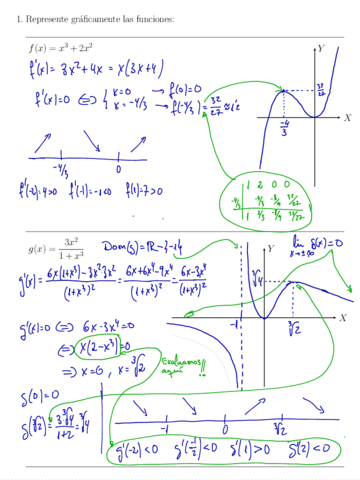 1. Represente gráficamente las funciones:
f(x) = x³ + 2x²
f'(x) = 3x² + 4x = x(3x+4)
f'(x)=0 ⇔ { x=0 → f(0)=0
x=-4/3 → f(-4/3)=32/27≈1'2
-4/3 0
f'(-2)=4>0 f'(-1)=-1<0 f'(1)=7>0
Y
32/27
-4/3
X
1 2 0 0
-4/3 -4/3 -8/9 32/27
1 2/3 -8/9 32/27
g(x) = 3x²/(1 + x³) Dom(g)=ℝ-{-1}
g'(x) = (6x(1+x³)-3x²·3x²)/(1+x³)² = (6x+6x⁴-9x⁴)/(1+x³)² = (6x-3x⁴)/(1+x³)²
g'(x)=0 ⇔ 6x-3x⁴=0
⇔ x(2-x³)=0
⇔ x=0, x=∛2
Evaluamos aquí!!
Y
lím g(x)=0
x→±∞
∛4
-1
∛2
X
g(0)=0
g(∛2)=3∛4/(1+2)=∛4
-1 0 ∛2
g'(-2)<0 g'(-1/2)<0 g'(1)>0 g'(2)<0